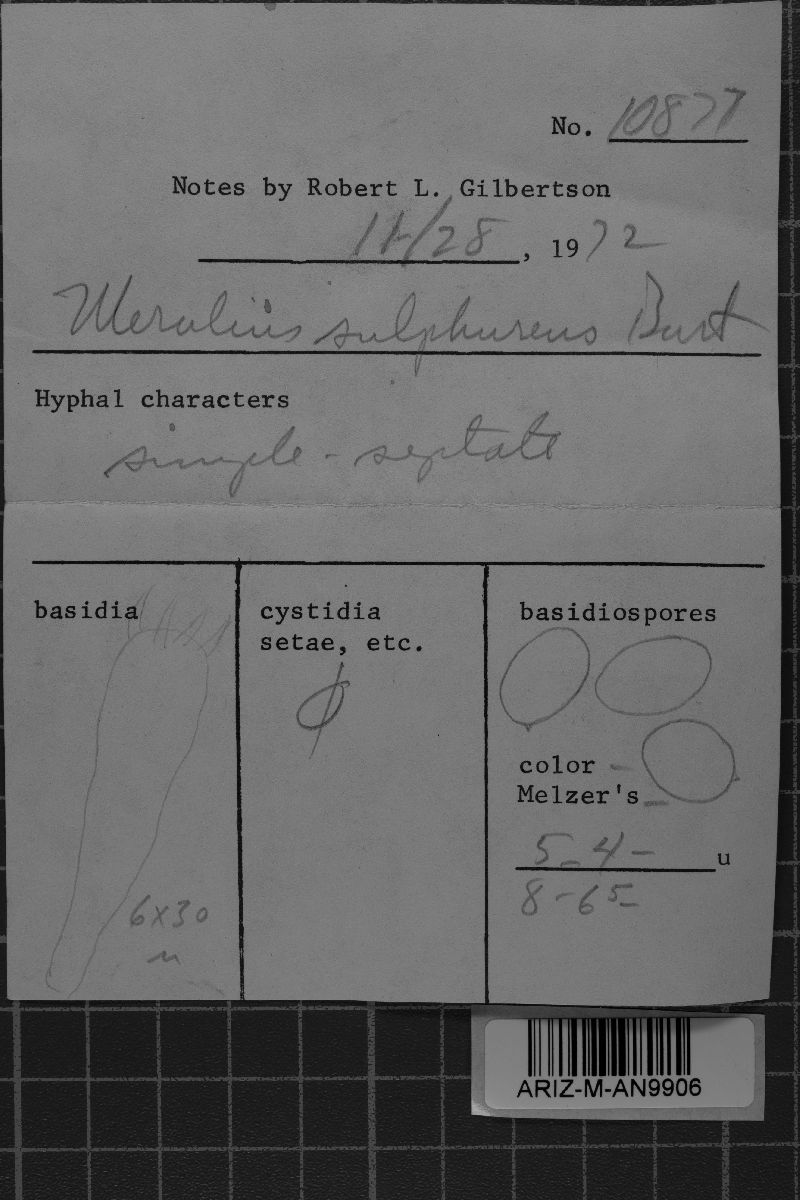 No. 10877
Notes by Robert L. Gilbertson
11/28, 1972
Merulius sulphureus Burt
Hyphal characters
simple-septate
basidia
6x30
u
cystidia
setae, etc.
basidiospores
color -
Melzer's -
5-4- u
8-65-
ARIZ-M-AN9906